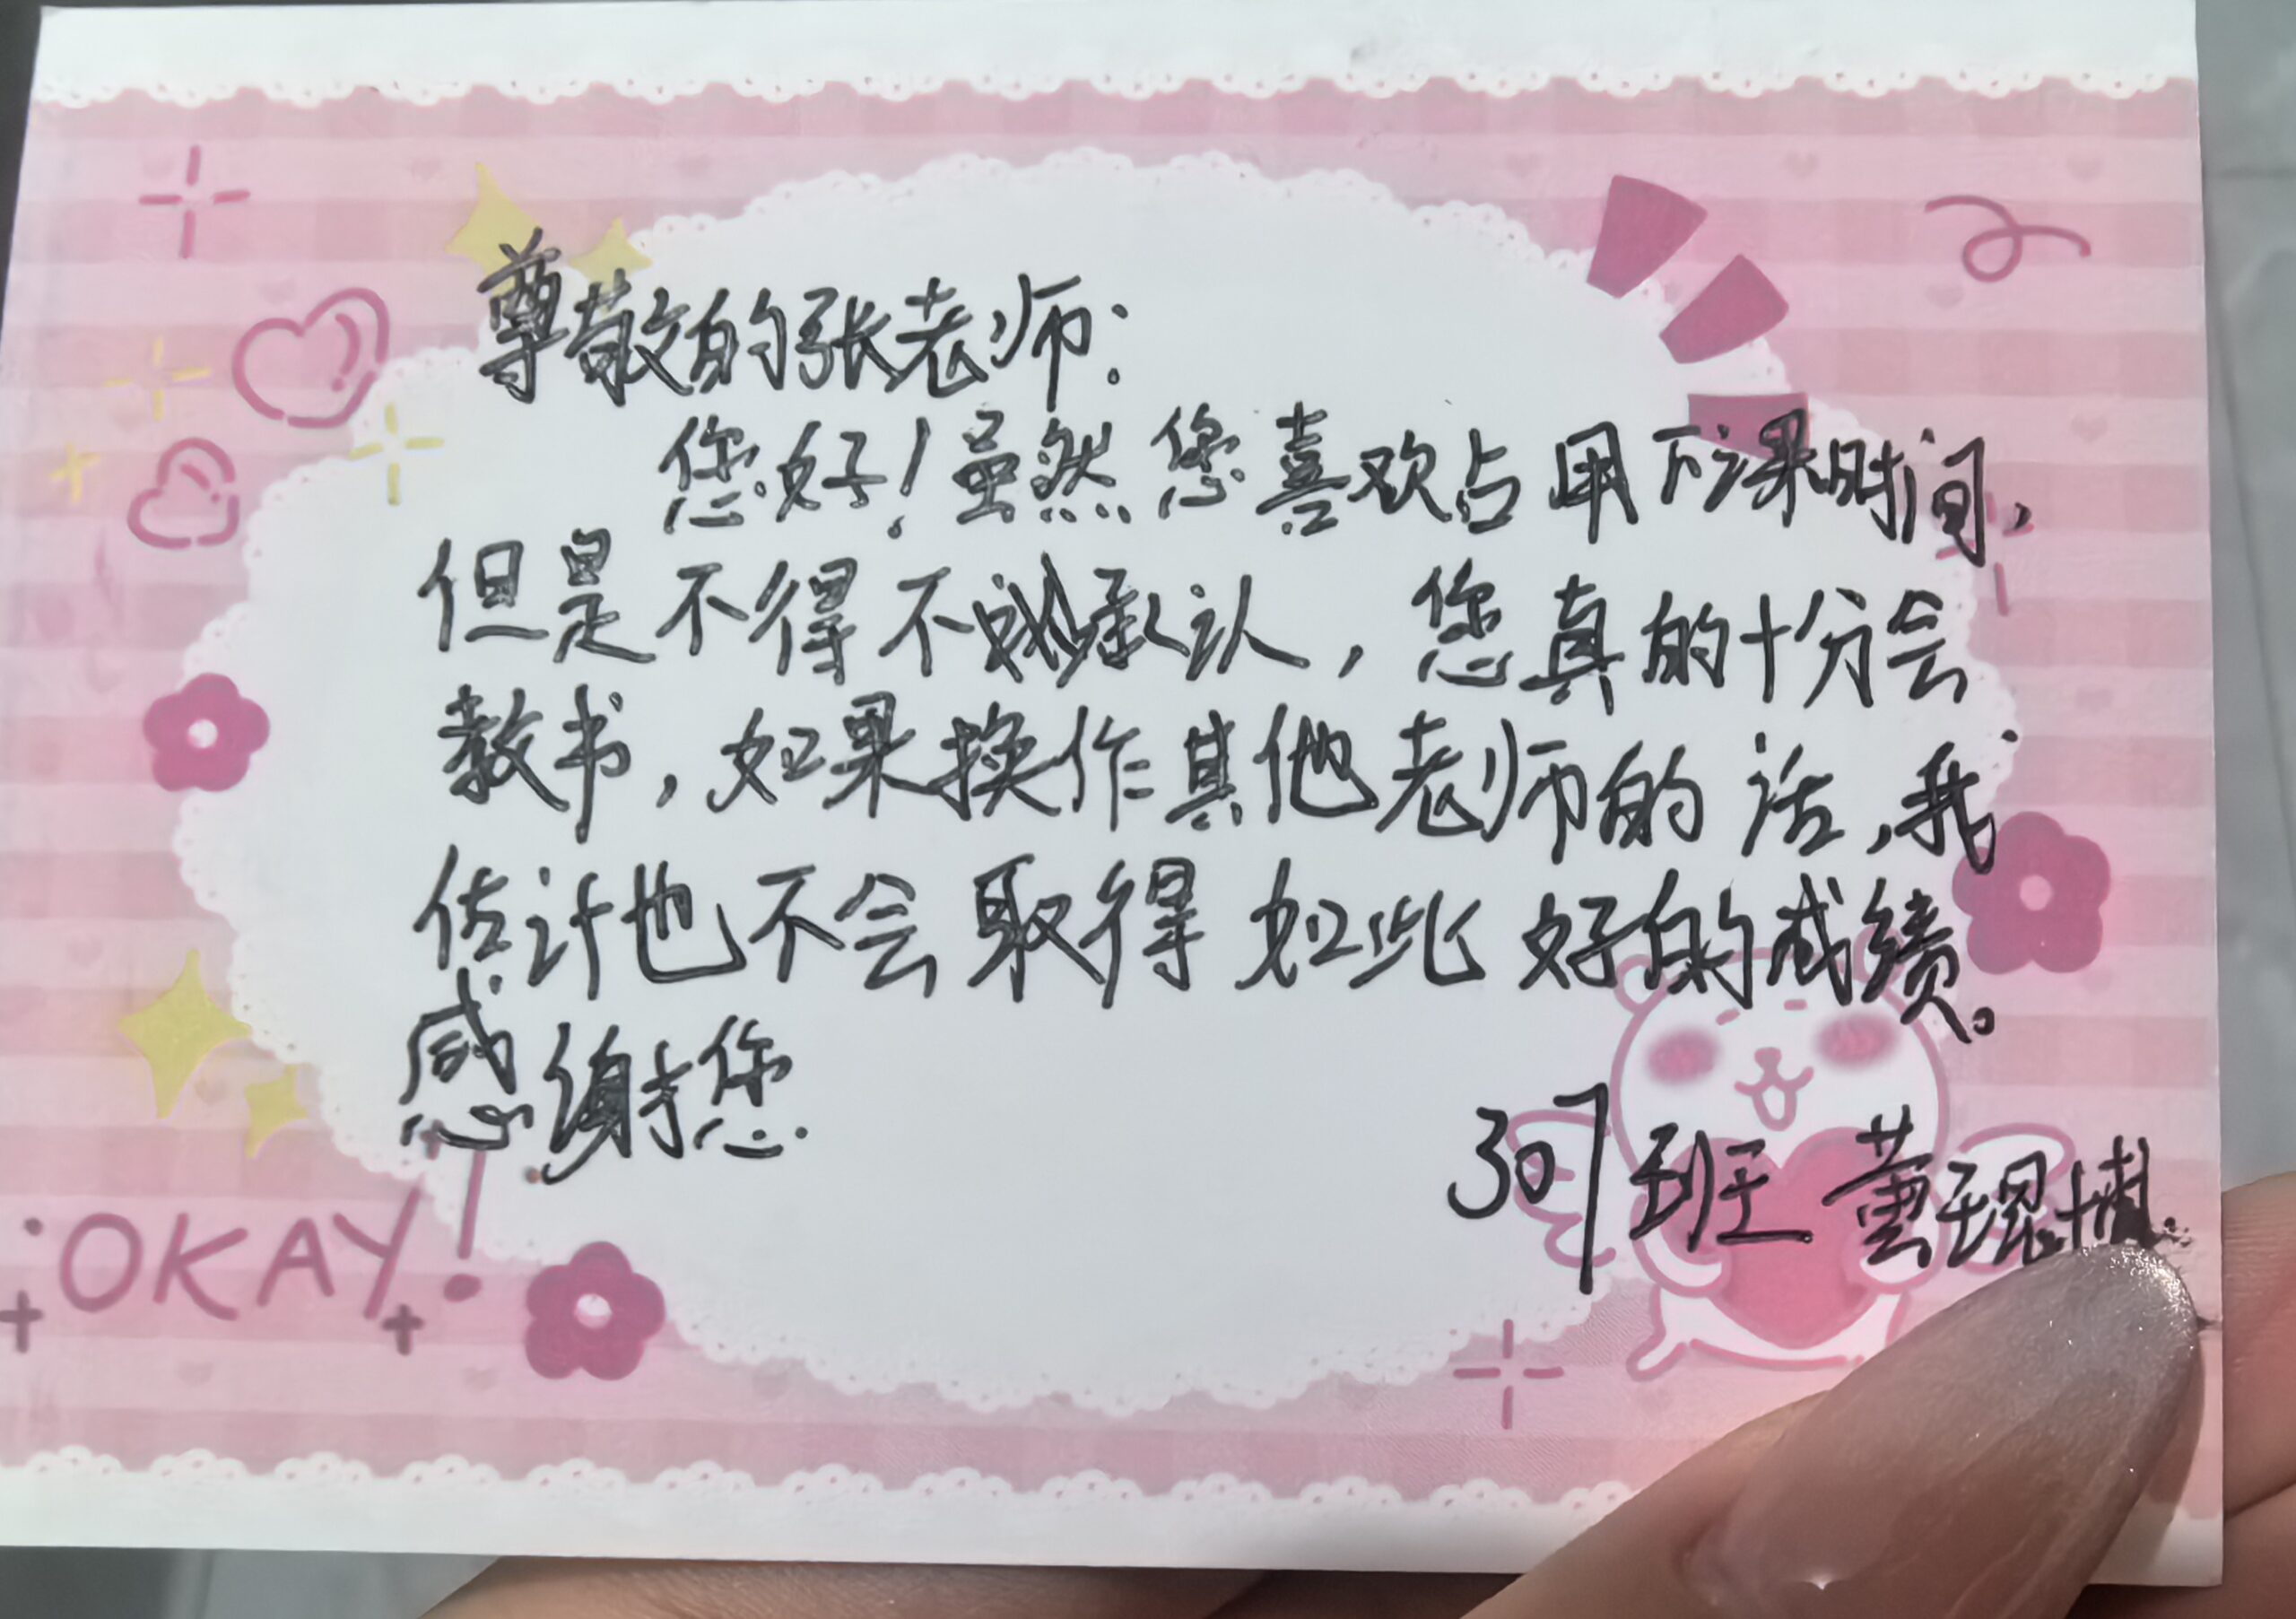 尊敬的张老师：
您好！虽然您喜欢占用下课时间，
但是不得不承认，您真的十分会
教书，如果换作其他老师的话，我
估计也不会取得如此好的成绩。
感谢您
307班
OKAY!